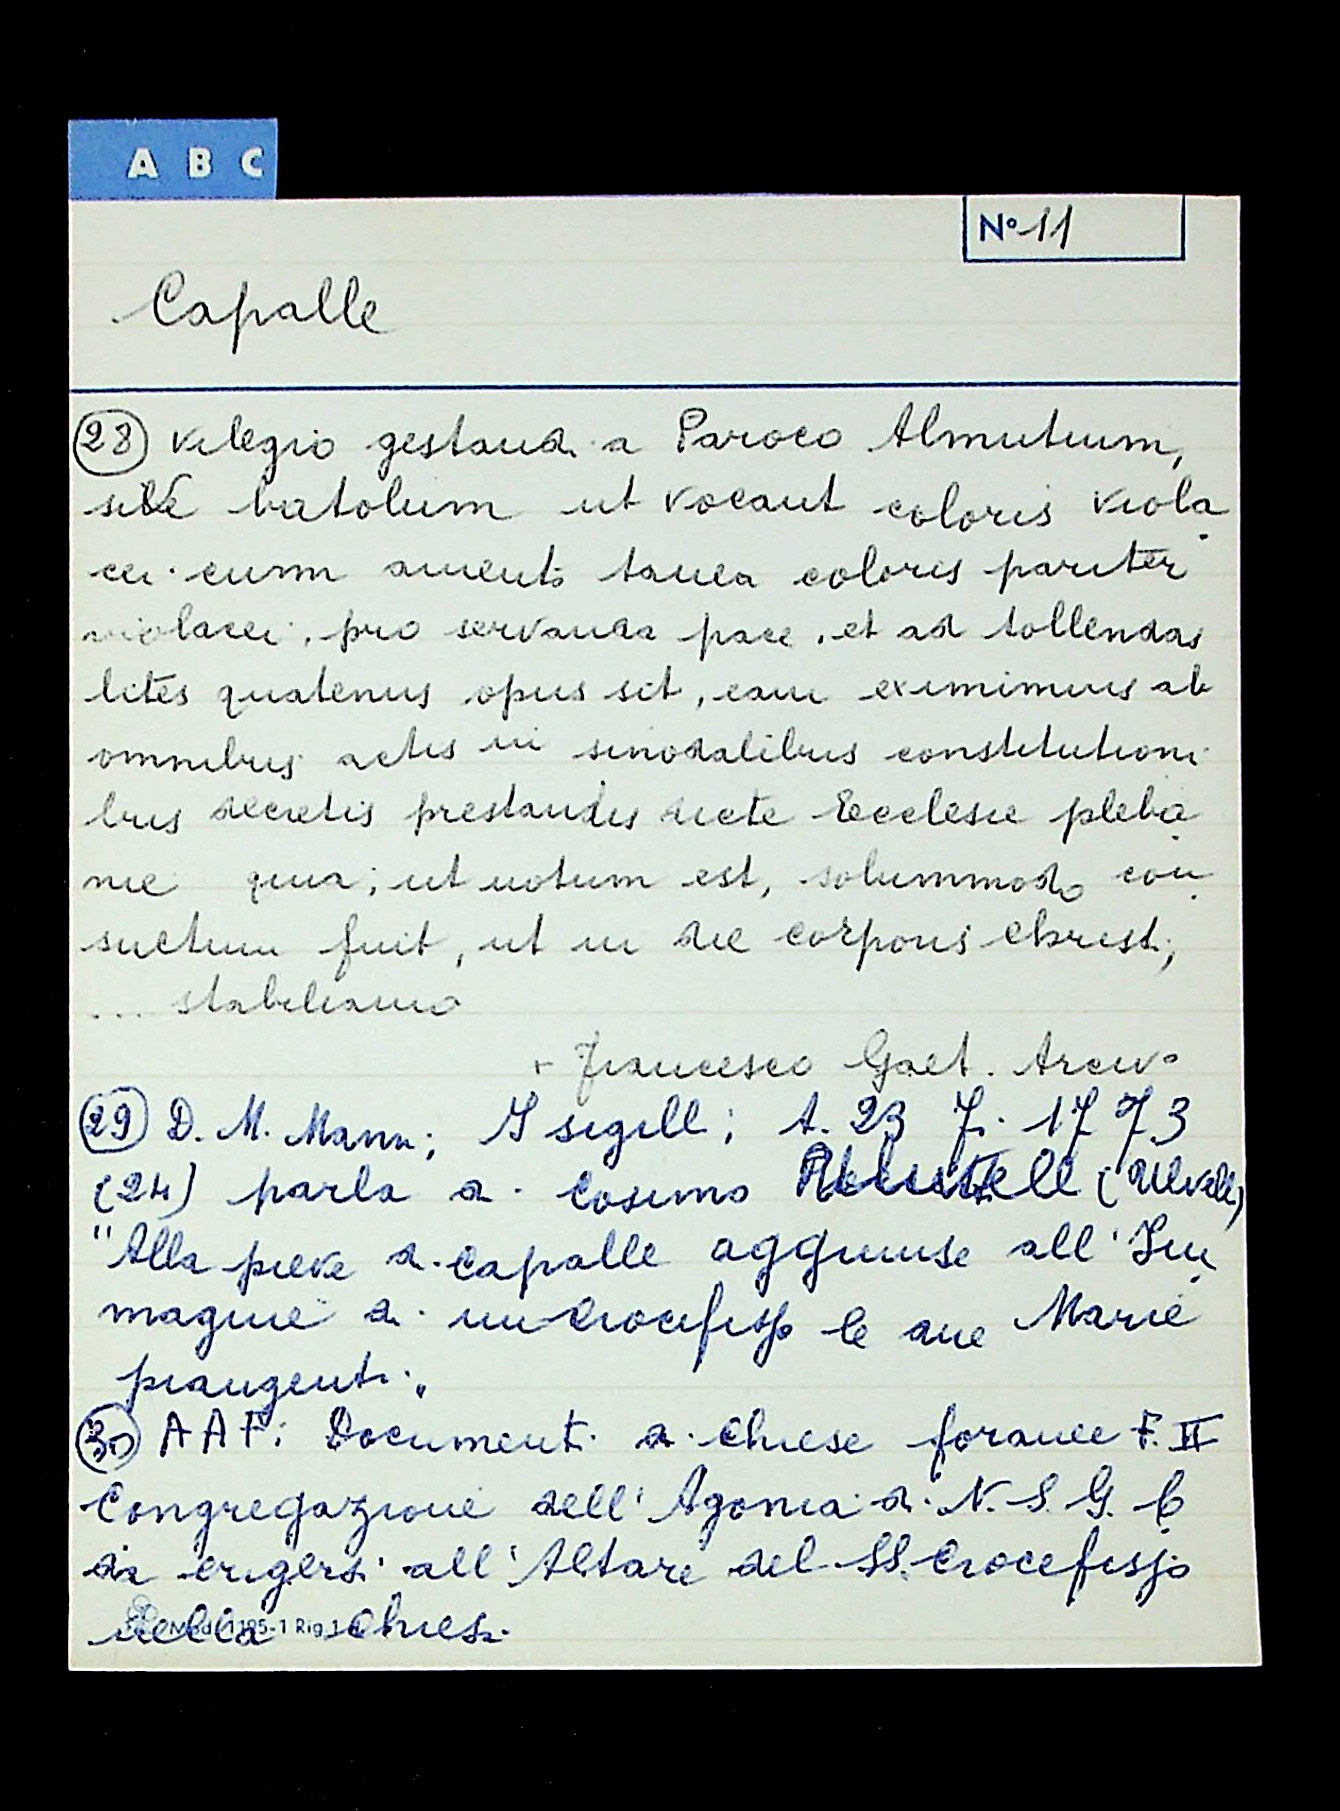 A B C
Nº 11
Capalle
(28) vilegio gestandi a Paroco Almutium,
sive batolum ut vocant coloris viola
cei cum amenti tanea coloris pariter
violacei, pro servanda pace, et ad tollendas
lites quatenus opus sit, eam eximimus ab
omnibus actis in sinodalibus constitutioni
bus decretis prestandis dicte Ecclesie pleba
nie quia; ut notum est, solummodo con
suetum fuit, ut in die corporis Christi;
... stabiliamo
+ Francesco Gaet. Arcivº
(29) D. M. Manni; I sigilli; t. 23 Fi. 1773
(24) parla di Cosimo
"Alla pieve di Capalle aggiunse all'Im
magine di un Crocefisso le due Marie
piangenti."
(30) AAF: Documenti di chiese foranee F. II
Congregazione dell'Agonia di N. S. G. C
da erigersi all'Altare del SS. Crocefisso
della chiesa.